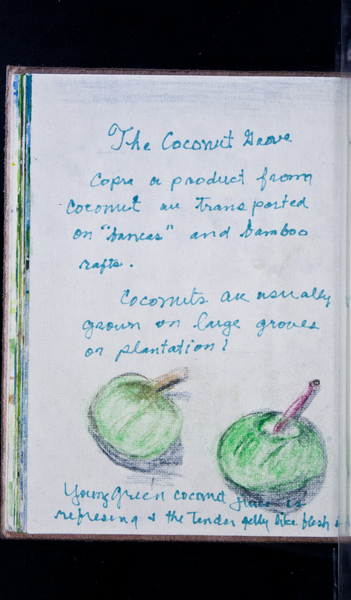 The Coconut Grove
Copra a product from
coconut are transported
on "bancas" and bamboo
rafts.
Coconuts are usually
grown on large groves
or plantation!
Young Green coconut juice is
refresing & the Tender gelly like flesh